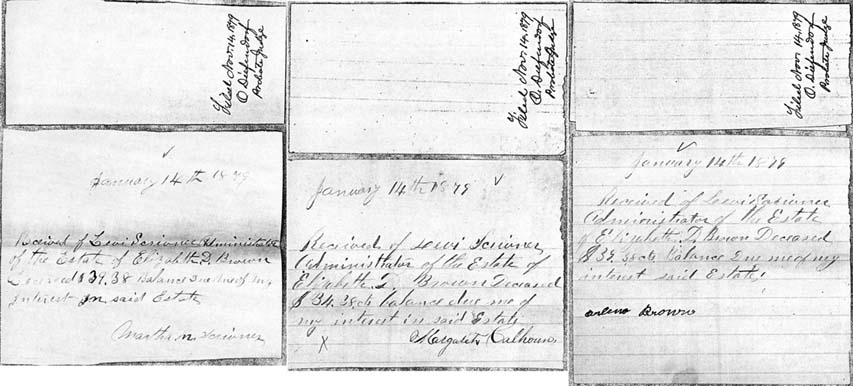 Filed Nov. 14, 1879
O Diefendorf
Probate Judge
January 14th 1879
Received of Levi Scrivner Administrator
of the Estate of Elizabeth D. Brown
Deceased $39.38 Balance due me of my
interest in said Estate
Martha Scrivner
Filed Nov. 14, 1879
O Diefendorf
Probate Judge
January 14th 1879
Received of Levi Scrivner
Administrator of the Estate of
Elizabeth D. Brown Deceased
$34.38cts balance due me of
my interest in said Estate
X Margaret Calhoun
Filed Nov. 14, 1879
O Diefendorf
Probate Judge
January 14th 1879
Received of Levi Scrivner
Administrator of the Estate
of Elizabeth D. Brown Deceased
$39.38cts balance due me of my
interest said Estate
Brown